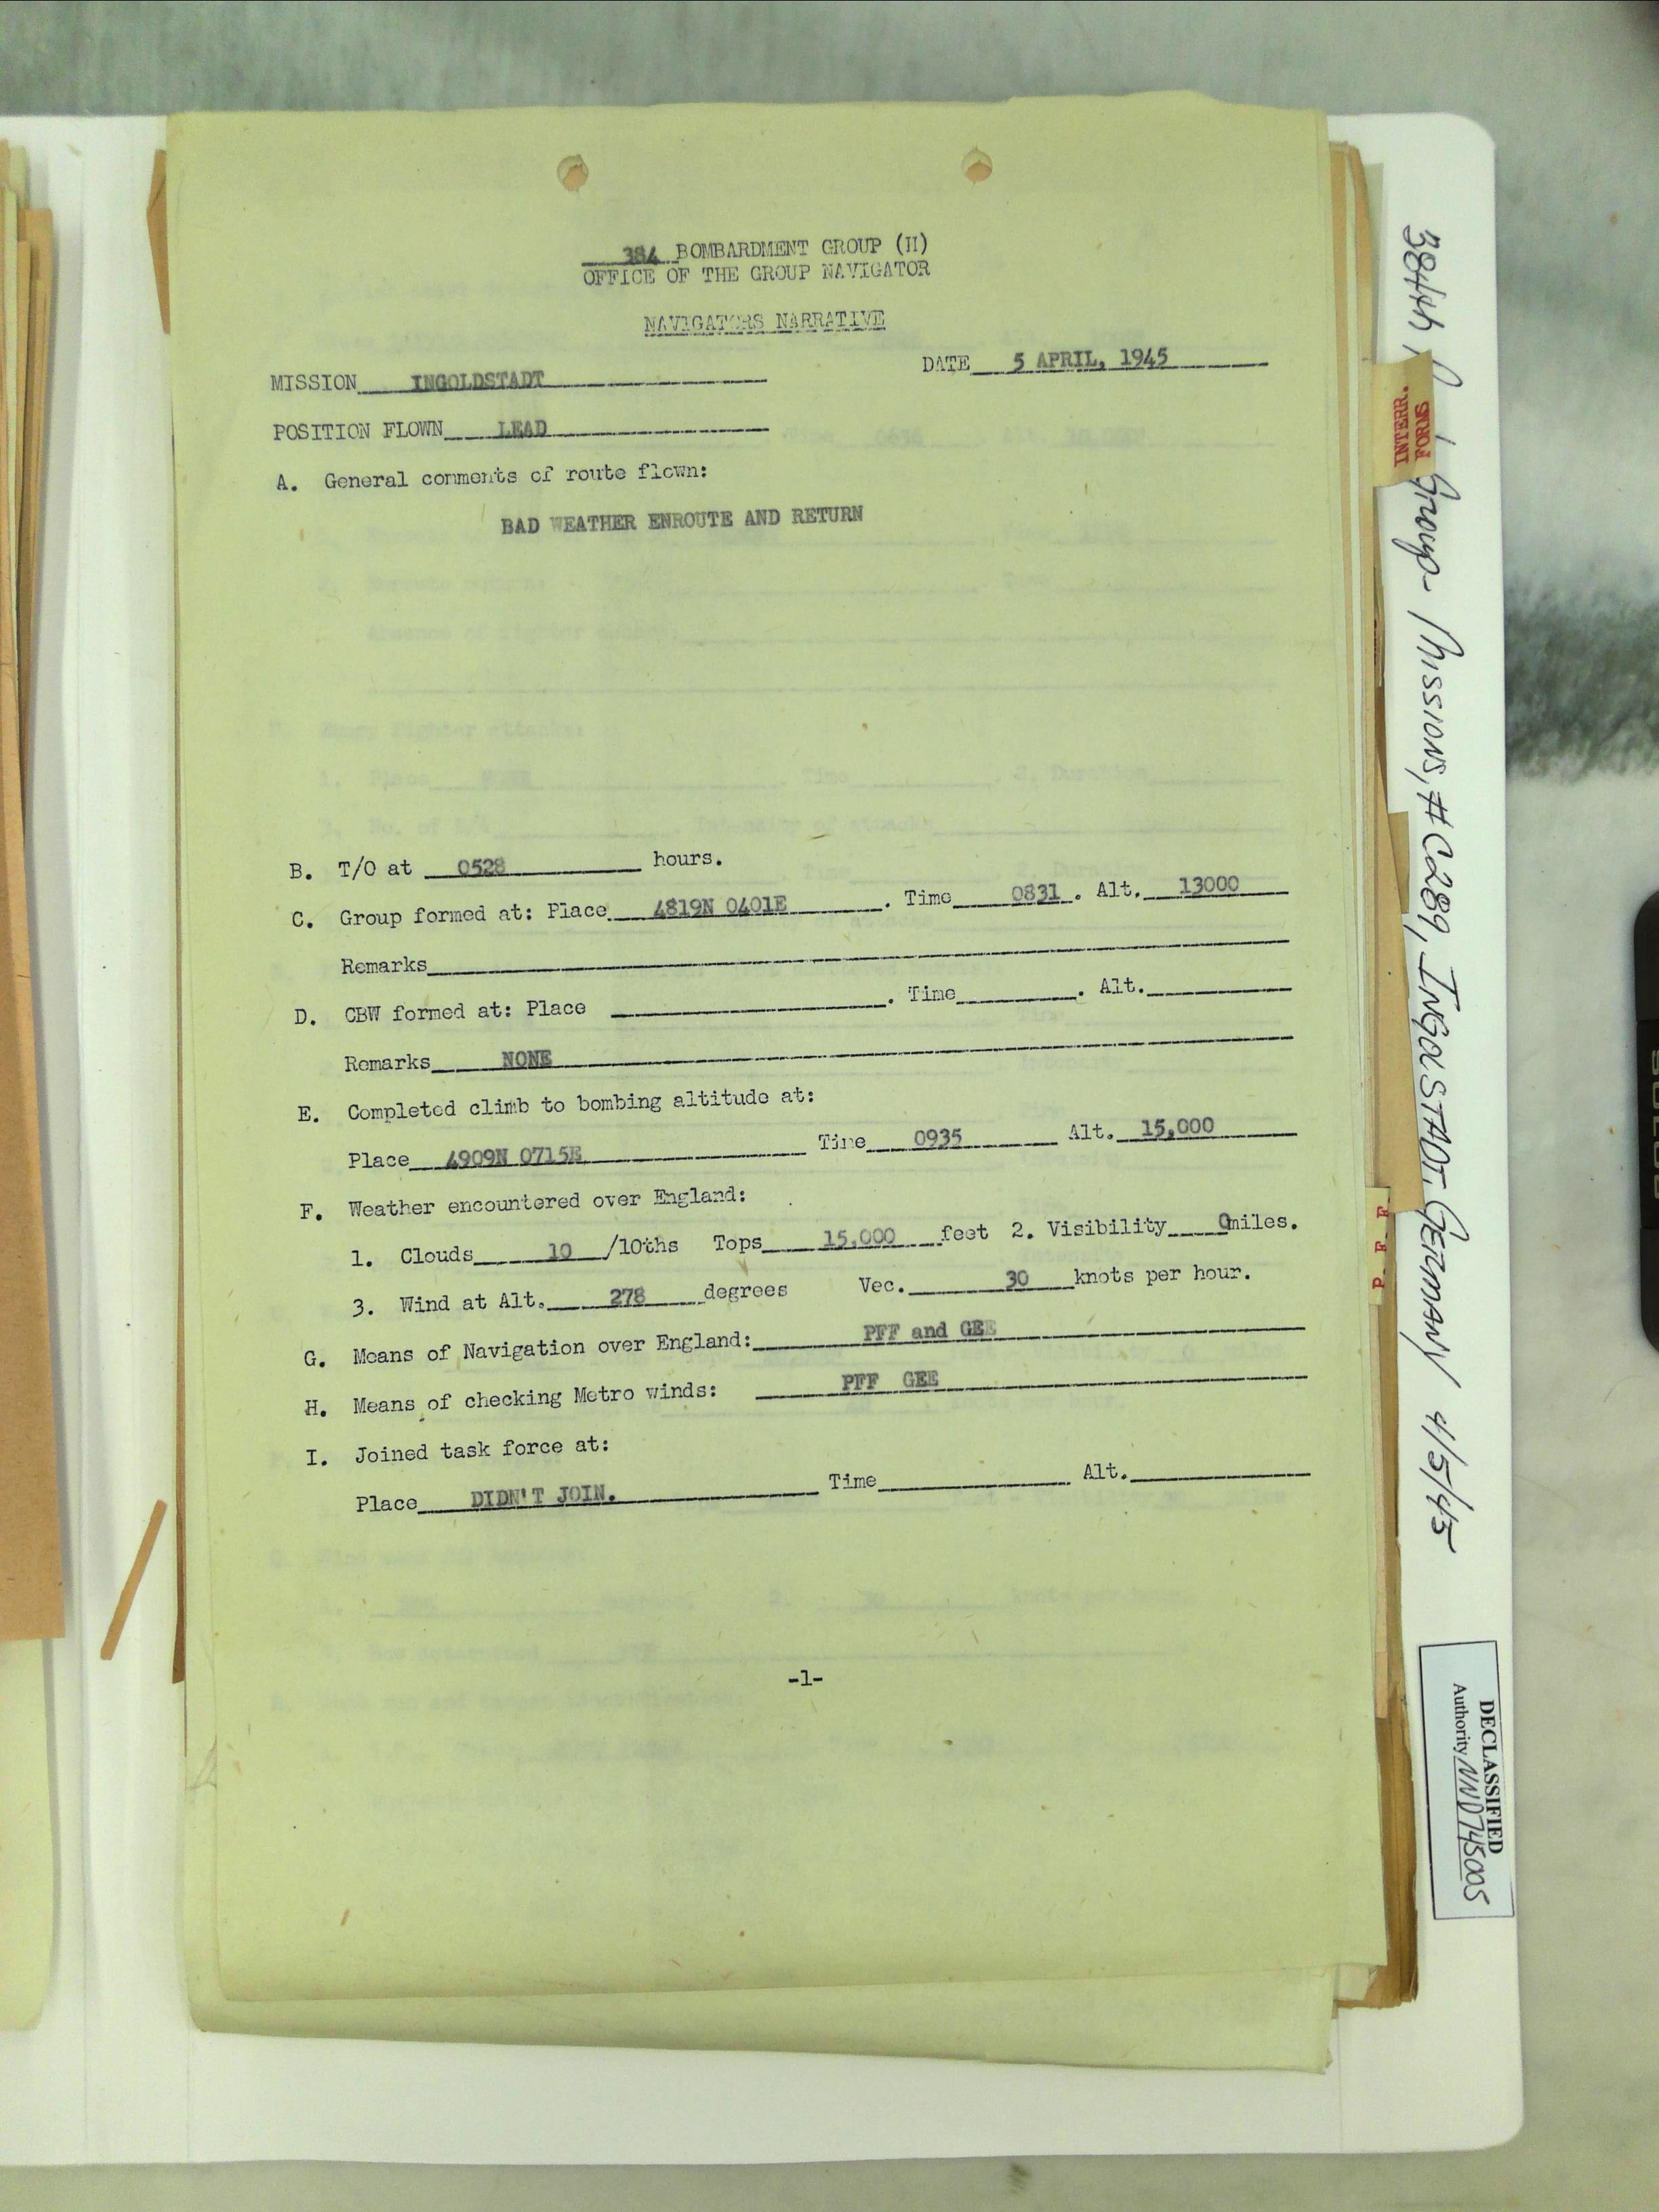 384 BOMBARDMENT GROUP (H)
OFFICE OF THE GROUP NAVIGATOR
NAVIGATORS NARRATIVE
DATE 5 APRIL, 1945
MISSION INGOLDSTADT
POSITION FLOWN LEAD
A. General comments of route flown:
BAD WEATHER ENROUTE AND RETURN
B. T/O at 0528 hours.
C. Group formed at: Place 4819N 0401E . Time 0831 . Alt. 13000
Remarks
D. CBW formed at: Place . Time . Alt.
Remarks NONE
E. Completed climb to bombing altitude at:
Place 4909N 0715E Time 0935 Alt. 15,000
F. Weather encountered over England:
1. Clouds 10 /10ths Tops 15,000 feet 2. Visibility 0 miles.
3. Wind at Alt. 278 degrees Vec. 30 knots per hour.
G. Means of Navigation over England: PFF and GEE
H. Means of checking Metro winds: PFF GEE
I. Joined task force at:
Place DIDN'T JOIN. Time Alt.
-1-
INTERR.
FORMS
P F F
384th Group - Missions, #C289, INGOLSTADT, GERMANY 4/5/45
DECLASSIFIED
Authority NND745005